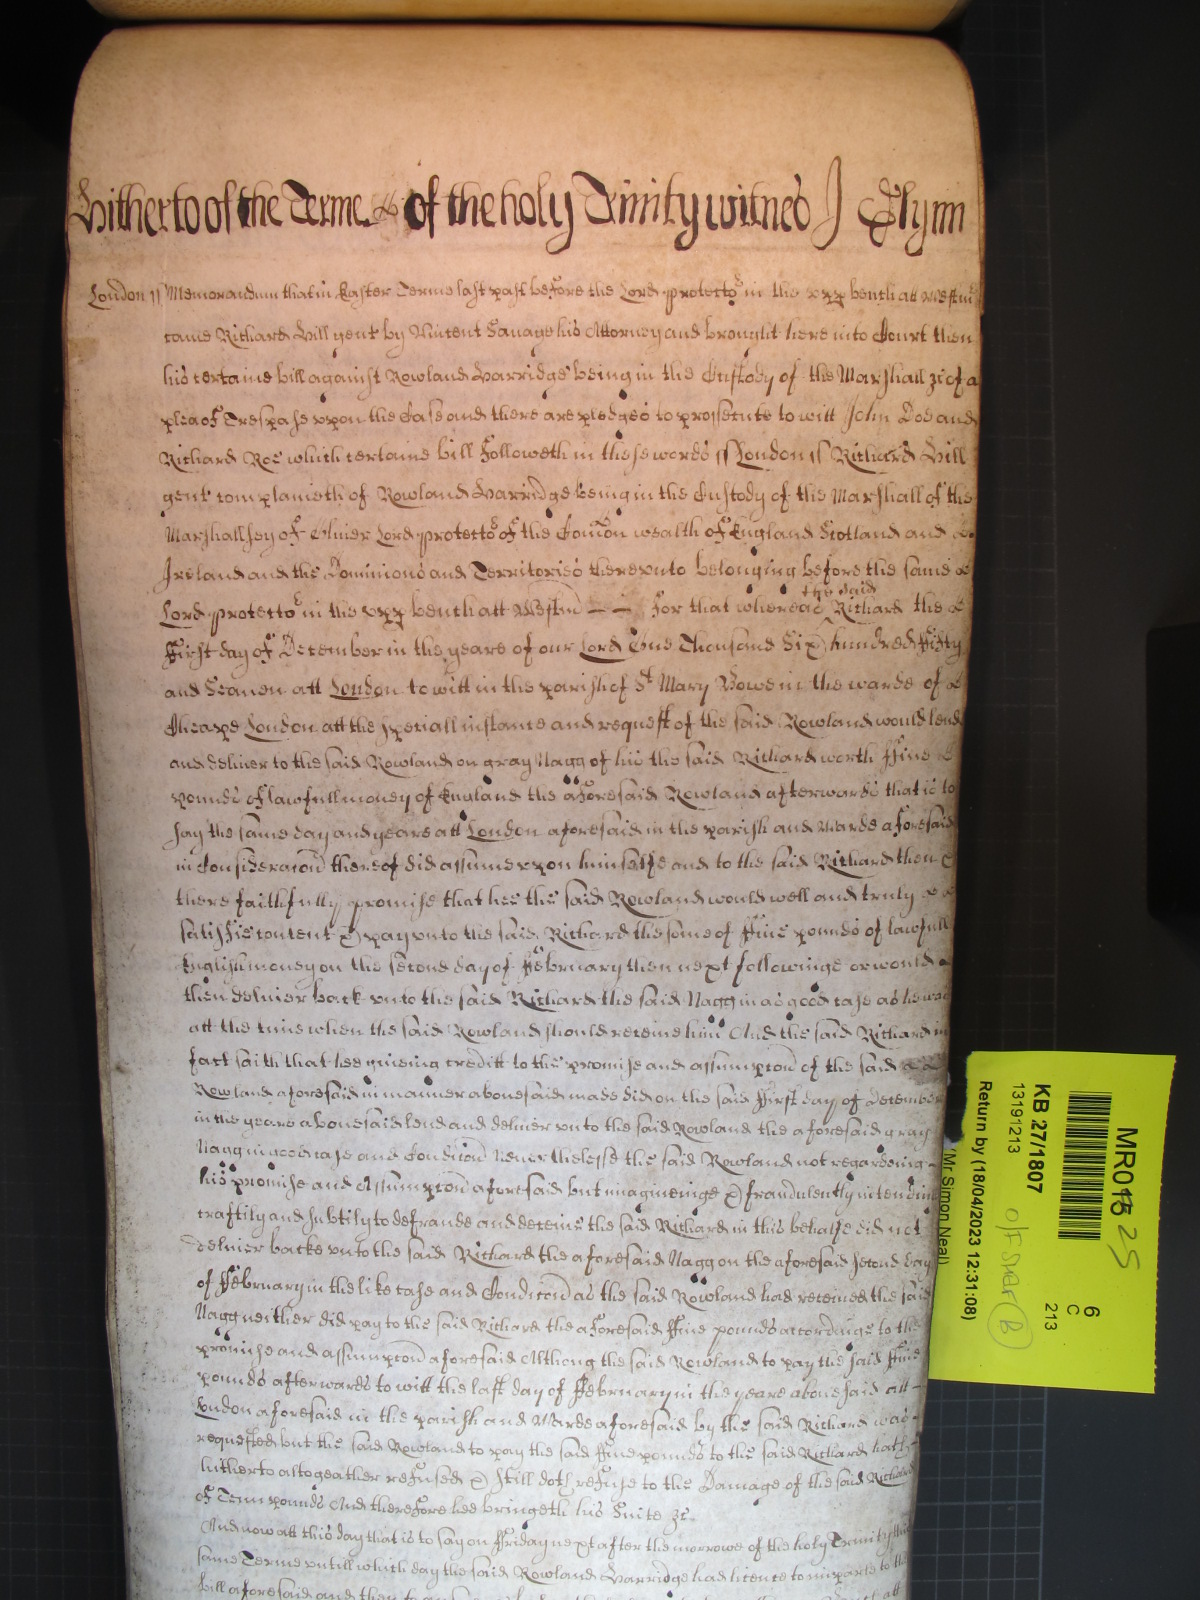 Hitherto of the Terme & of the holy Trinity witnes J Glynn
London ss Memorandum that in Easter Terme last past before the Lord protector in the upp bench att Westm
came Richard Hill gent by Vincent Savage his Attorney and brought here into Court then
his certaine bill against Rowland Harridge being in the Custody of the Marshall &c of a
plea of Trespase vpon the Case and there are pledges to prossecute to witt John Doe and
Richard Roe which certaine bill followeth in these words ss London ss Richard Hill
gent complaineth of Rowland Harridge being in the Custody of the Marshall of the
Marshallsey of Oliver Lord protector of the Comon wealth of England Scotland and
Ireland and the Dominions and Territories therevnto belonging before the same
Lord protector in the upp bench att Westm For that whereas the said Richard the
First day of December in the yeare of our Lord One Thousand Six hundred Fifty
and Seaven att London to witt in the parish of St Mary Bowe in the warde of
Cheape London att the speciall instance and request of the said Rowland would lend
and deliver to the said Rowland on gray Nagg of his the said Richard worth Five
pounds of lawfull money of England the aforesaid Rowland afterwards that is to
say the same day and yeare att London aforesaid in the parish and Warde aforesaid
in Consideracon thereof did assume vpon himselfe and to the said Richard then &
there faithfully promise that hee the said Rowland would well and truly
satisfie content & pay vnto the said Richard the some of Five pounds of lawfull
English money on the second day of February then next followinge or would
then deliver back vnto the said Richard the said Nagg in as good case as he was
att the time when the said Rowland should receive him And the said Richard in
fact saith that hee giveing creditt to the promise and assumpcon of the said
Rowland aforesaid in manner abovesaid made did on the said First day of December
in the yeare abovesaid lend and deliver vnto the said Rowland the aforesaid gray
Nagg in good case and Condicon Neverthelesse the said Rowland not regardeing
his promise and Assumpcon aforesaid but imagineinge & fraudulently intending
craftily and subtily to defraude and deceive the said Richard in this behalfe did not
deliver backe vnto the said Richard the aforesaid Nagg on the aforesaid second day
of February in the like case and Condicon as the said Rowland had received the said
Nagg neither did pay to the said Richard the aforesaid Five pounds accordinge to the
promise and assumpcon aforesaid Althoug the said Rowland to pay the said Five
pounds afterwards to witt the last day of February in the yeare abovesaid att
London aforesaid in the parish and Warde aforesaid by the said Richard was
requested but the said Rowland to pay the said Five pounds to the said Richard hath
hitherto altogeather refused & still doth refuse to the Damage of the said Richard
of Tenn pounds And therefore hee bringeth his Suite &c
And now att this day that is to say on Friday next after the morrowe of the holy Trinity this
same Terme vntill which day the said Rowland Harridge had licence to imparle to the
bill aforesaid and then to
MR018 25
6
C
213
KB 27/1807
13191213
Return by (18/04/2023 12:31:08)
(Mr Simon Neal)